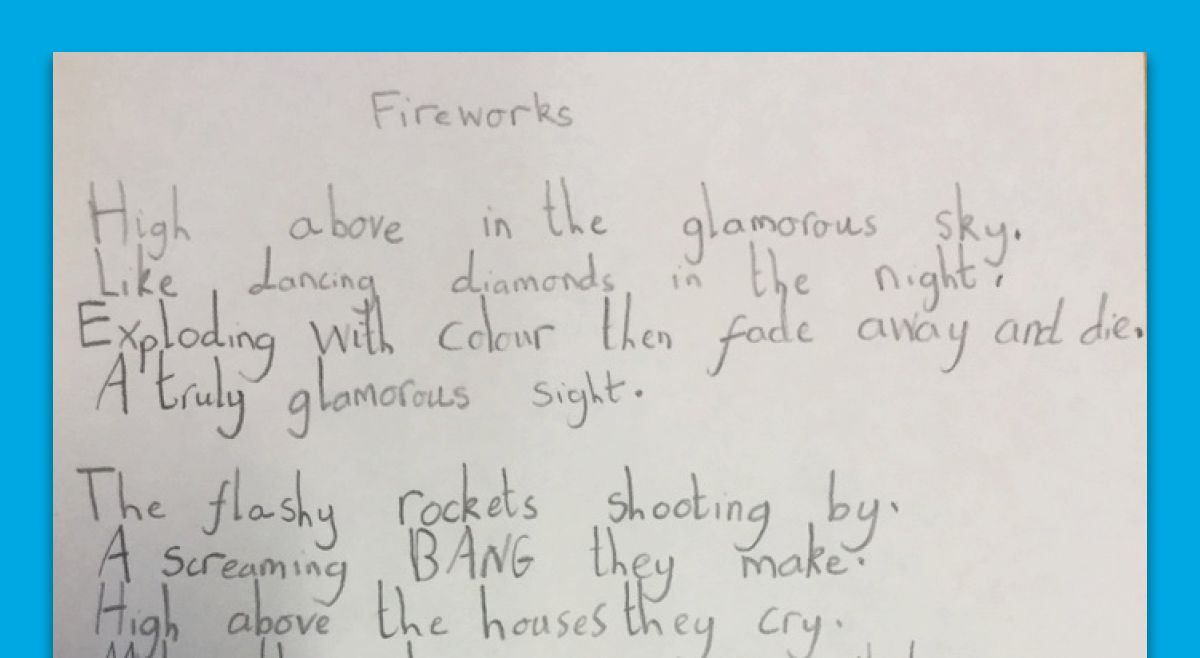 Fireworks
High above in the glamorous sky.
Like dancing diamonds in the night.
Exploding with colour then fade away and die.
A truly glamorous sight.
The flashy rockets shooting by.
A screaming BANG they make.
High above the houses they cry.